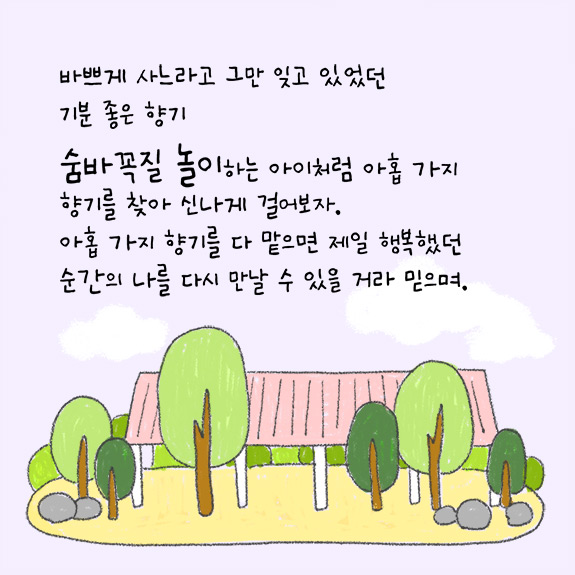 바쁘게 사느라고 그만 잊고 있었던
기분 좋은 향기
숨바꼭질 놀이하는 아이처럼 아홉 가지
향기를 찾아 신나게 걸어보자.
아홉 가지 향기를 다 맡으면 제일 행복했던
순간의 나를 다시 만날 수 있을 거라 믿으며.